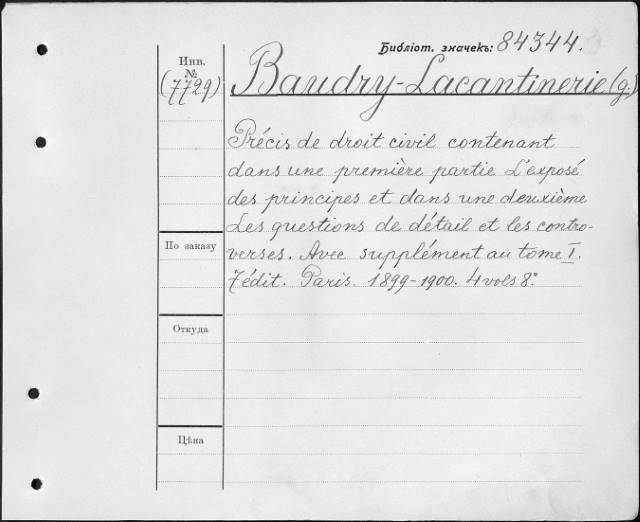 Библіот. значекъ: 84344.
Инв.
№
(7729)
Baudry-Lacantinerie (g.)
Précis de droit civil contenant
dans une première partie L'exposé
des principes et dans une deuxième
Les questions de détail et les contro-
verses. Avec supplément au tome I.
7 édit. Paris. 1899-1900. 4 vols 8°
По заказу
Откуда
Цѣна